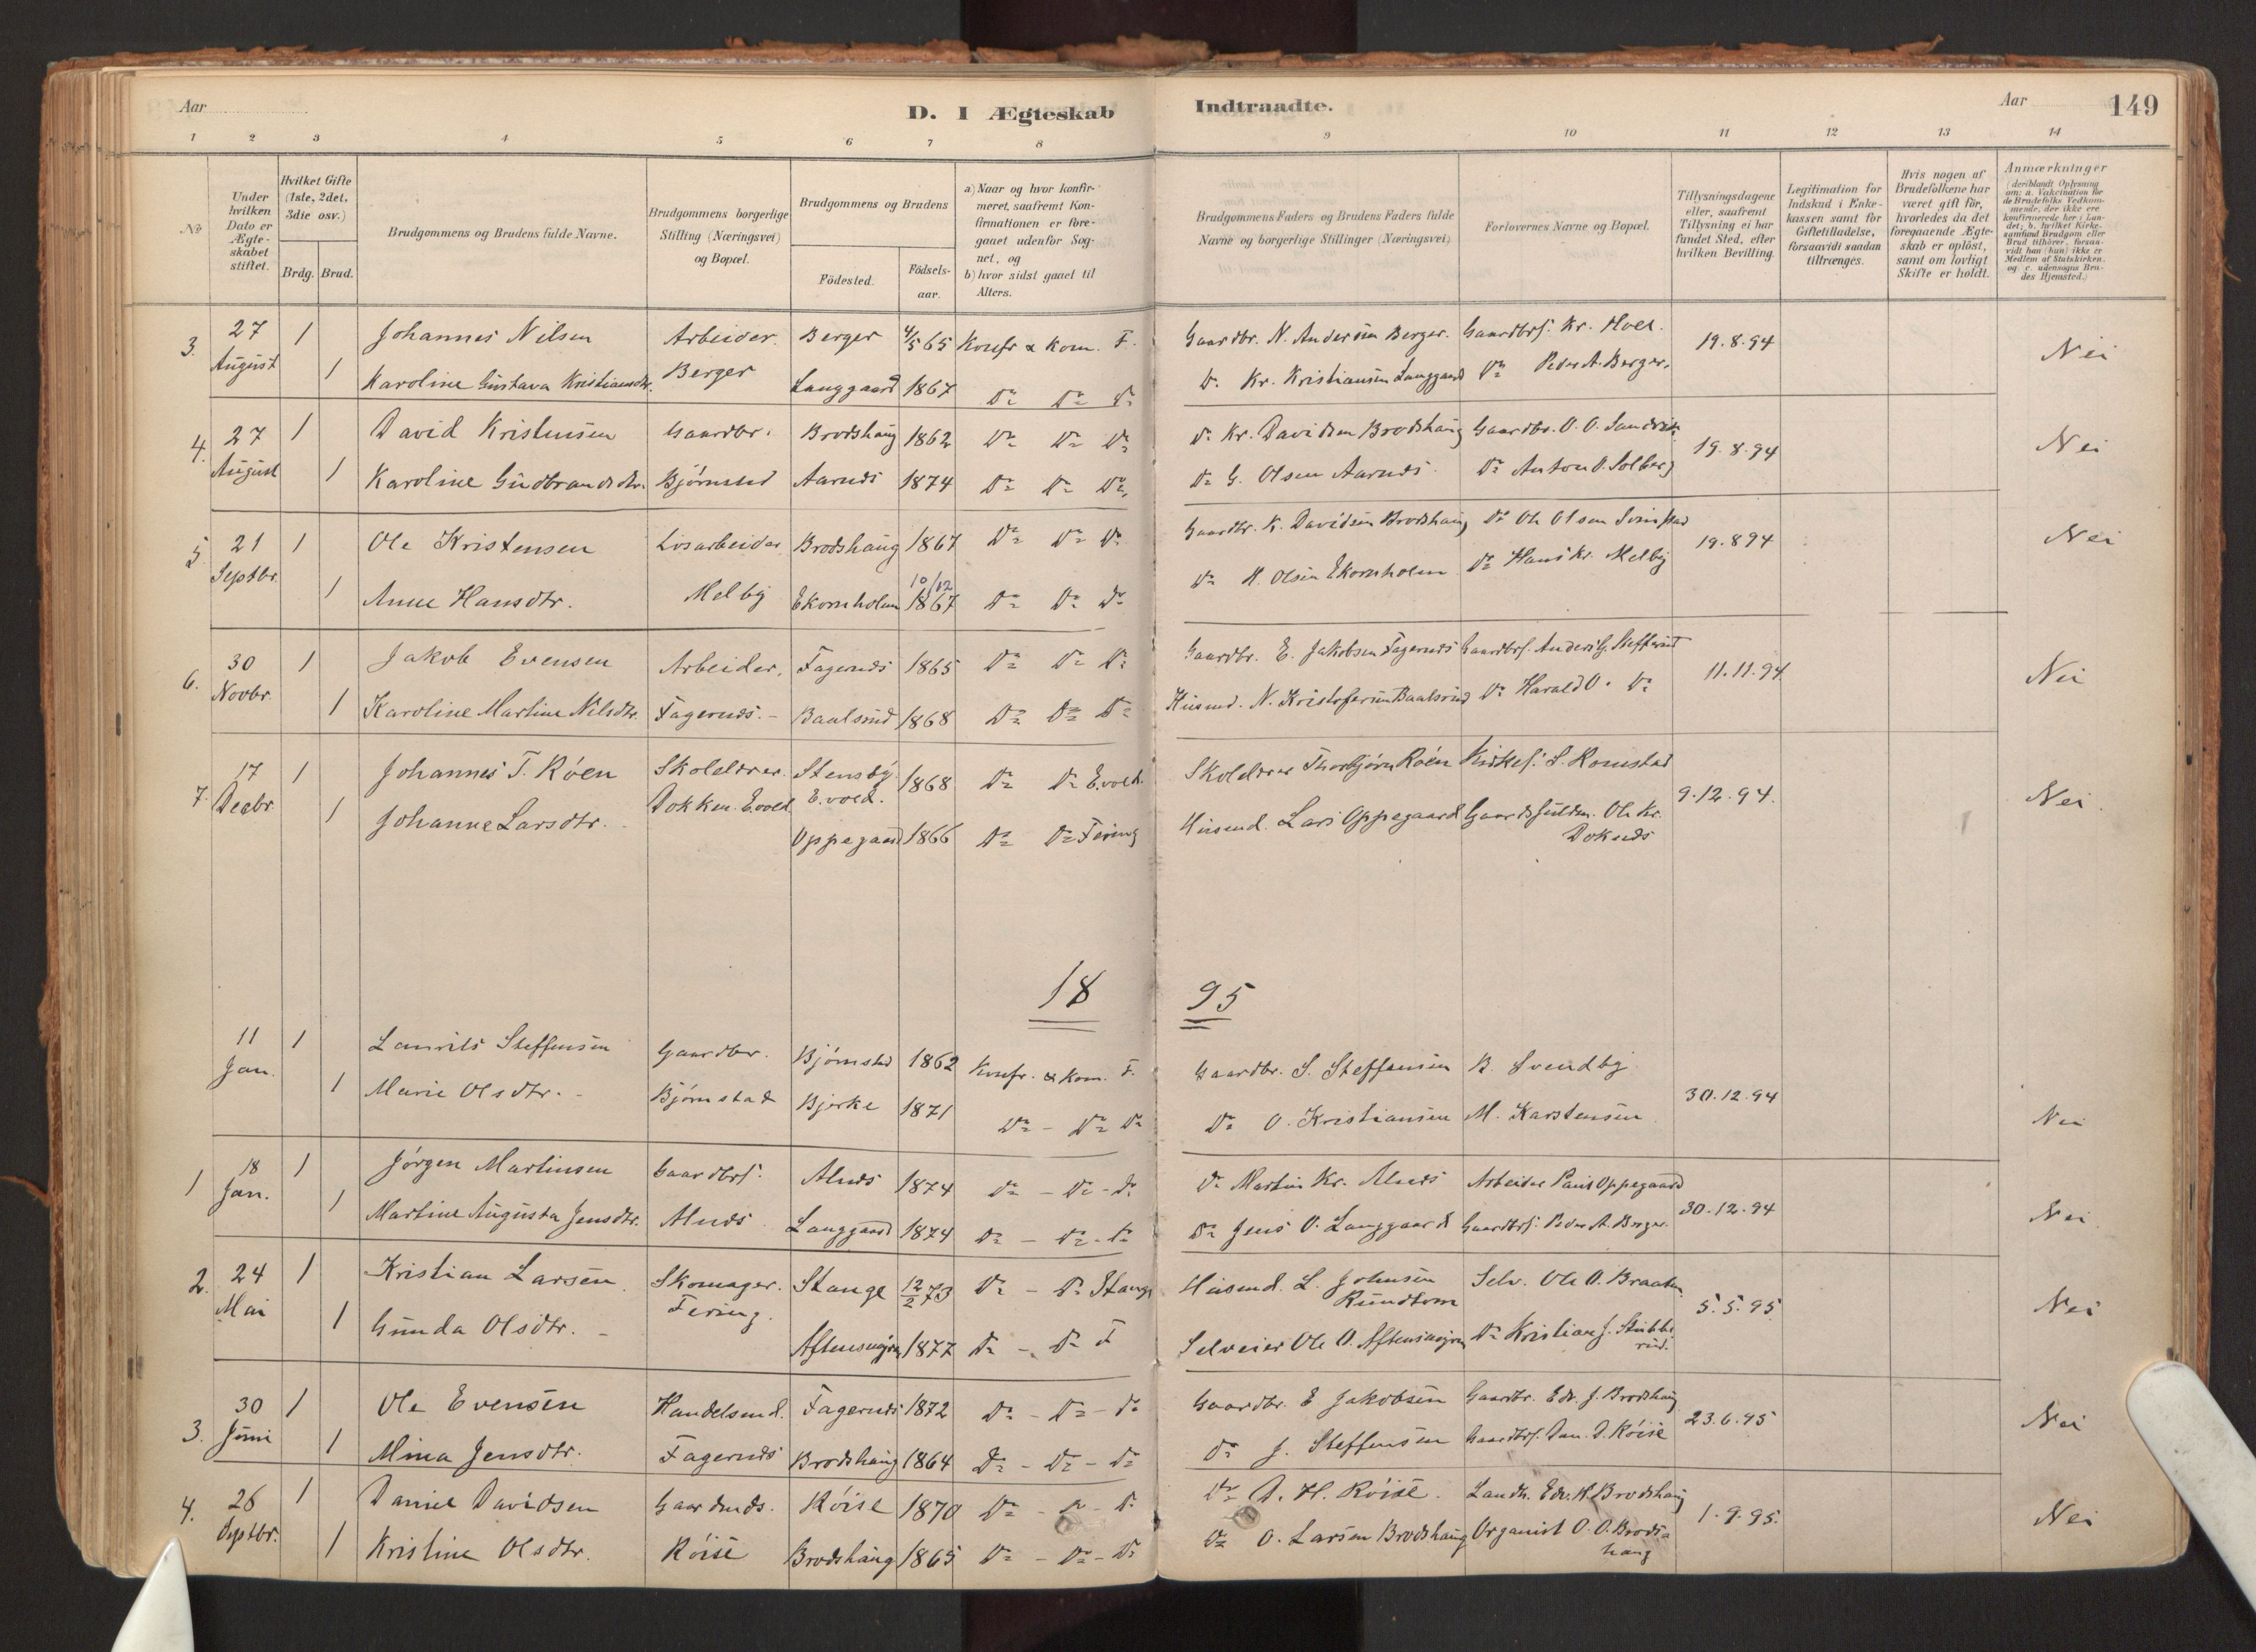 Aar
D. I Ægteskab Indtraadte.
Aar
149
1 2 3 4 5 6 7 8 9 10 11 12 13 14
No
Under hvilken Dato er Ægteskabet stiftet.
Hvilket Gifte (1ste, 2det, 3die osv.)
Brdg. Brud.
Brudgommens og Brudens fulde Navne.
Brudgommens borgerlige Stilling (Næringsvei) og Bopæl.
Brudgommens og Brudens
Födested.
Födselsaar.
a) Naar og hvor konfirmeret, saafremt Konfirmationen er foregaaet udenfor Sognet, og
b) hvor sidst gaaet til Alters.
Brudgommens Faders og Brudens Faders fulde Navne og borgerlige Stillinger (Næringsvei)
Forlovernes Navne og Bopæl.
Tillysningsdagene eller, saafremt Tillysning ei har fundet Sted, efter hvilken Bevilling.
Legitimation for Indskud i Enkekassen samt for Giftetilladelse, forsaavidt saadan tiltrænges.
Hvis nogen af Brudefolkene har været gift för, hvorledes da det foregaaende Ægteskab er oplöst, samt om lovligt Skifte er holdt.
Anmærkninger (deriblandt Oplysning om: a. Vakcination for de Brudefolks Vedkommende, der ikke ere konfirmerede her i Landet; b. hvilket Kirkesamfund Brudgom eller Brud tilhörer, forsaavidt han (hun) ikke er Medlem af Statskirken, og c. udensogns Brudes Hjemsted.)
3. 27 August 1 Johannes Nilsen Arbeider. Berger 4/5 65 Konfr & kom. F. Gaardbr. N. Andersen Berger. Gaardbrs. Kr. Hoel. 19.8.94 Nei
1 Karoline Gustava Kristiansdtr. Berger Langgaard 1867 Do Do Do Do Kr. Kristiansen Langgaard Do Peder A. Berger.
4. 27 August 1 David Kristensen Gaardbr. Brodshaug 1862 Do Do Do Do Kr. Davidsen Brodshaug Gaardbr. O. O. Sandvik 19.8.94 Nei
1 Karoline Gudbrandsdtr. Bjørnstad Aarnds 1874 Do Do Do Do G. Olsen Aarnds. Do Anton O. Solberg
5 21 Septbr. 1 Ole Kristensen Losarbeider Brodshaug 1867 Do Do Do Gaardbr. K. Davidsen Brodshaug Do Ole Olsen 19.894 Nei
1 Anne Hansdtr. Melby Ekornholm 10/12 1867 Do Do Do Do H. Olsen Ekornholm Do Hans Kr. Melby
6. 30 Novbr 1 Jakob Evensen Arbeider. Fagernds 1865 Do Do Do Gaardbr. E. Jakobsen Fagernds Gaardbrs. Anders G. 11.11.94 Nei
1 Karoline Martine Nilsdtr. Fagernds. - Baalsrud 1868 Do Do Do Husmd. N. Kristofersen Baalsrud Do Harald O. Do
7. 17 Decbr 1 Johannes T. Röen Skolelærer. Stensby E.vold. 1868 Do Do E.vold. Skolelærer Thorbjørn Röen Kirkes. S. Romstad 9.12.94. Nei.
1 Johanne Larsdtr. Dokken. E.vold Oppegaard 1866 Do Do Fering Husmd. Lars Oppegaard Gaardsfuldm. Ole Kr. Doknds
18 95
11 Jan. 1 Laurits Steffensen Gaardbr. Bjørnstad 1862 Konfr. & kom. F. Gaardbr. S. Steffensen B. Svendby 30.12.94 Nei
1 Marie Olsdtr. - Bjørnstad Bjerke 1871 Do - Do Do Do O. Kristiansen M. Karstensen
1 18 Jan. 1 Jørgen Martinsen Gaardbrs. Alnds 1874 Do - Do - Do Do Martin Kr. Alnds Arbeider Paul Oppegaard 30.12.94 Nei
1 Martine Augusta Jensdtr. Alnds Langgaard 1874 Do - Do - Do Do Jens O. Langgaard Gaardbrs. Peder A. Berger.
2. 24 Mai 1 Kristian Larsen Skomager. Stange 12/2 73 Do - Do Stange Husmd. L. Johnsen Rundtom Selv. Ole O. Braaten 5.5.95 Nei
1 Gunda Olsdtr. - Fering. Aftensugjen 1877 Do - Do F Selveier Ole O. Aftensugjen Do Kristian J. Stubberud.
3. 30 Juni 1 Ole Evensen Handelsmd. Fagernds 1872 Do - Do - Do Gaardbr. E Jakobsen Gaardbr. Edv. J. Brodshaug 23.6.95 Nei
1 Mina Jensdtr. Fagernds Brodshaug 1864 Do - Do - Do Do J. Steffensen Gaardbrs. Dan. D. Röise
4. 26 Septbr. 1 Daniel Davidsen Gaardmds. Röise 1870 Do - Do - Do Do D. H. Röise. Landh. Edv. K. Brodshaug 1.9.95. Nei
1 Kristine Olsdtr. Röise Brodshaug 1865 Do - Do - Do Do O. Larsen Brodshaug Organist O. O. Brodshaug